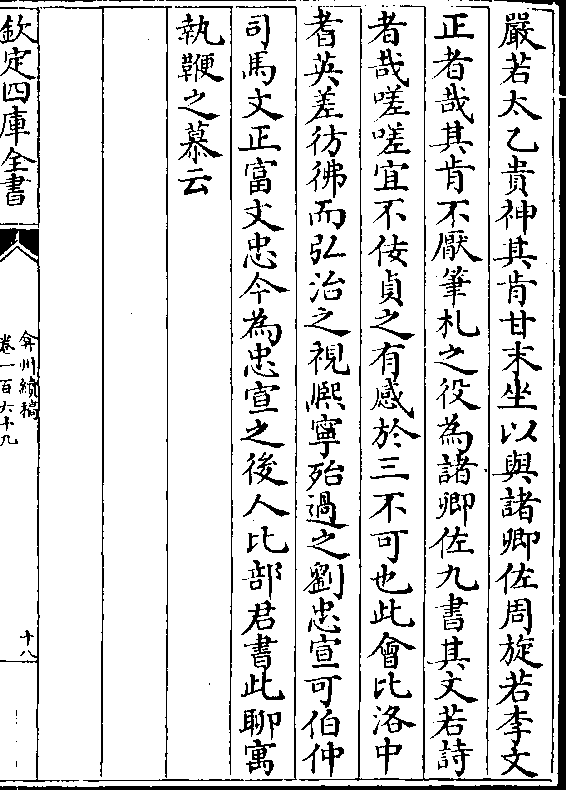 嚴若太乙貴神其肯甘末坐以與諸卿佐周旋若李文
正者哉其肯不厭筆札之役為諸卿佐九書其文若詩
者哉嗟嗟宜不佞貞之有感於三不可也此會比洛中
耆英差彷彿而弘治之視熈寧殆過之劉忠宣可伯仲
司馬文正富文忠今為忠宣之後人比部君書此聊寓
執鞭之慕云
欽定四庫全書
弇州續稿
卷一百六十九
十八